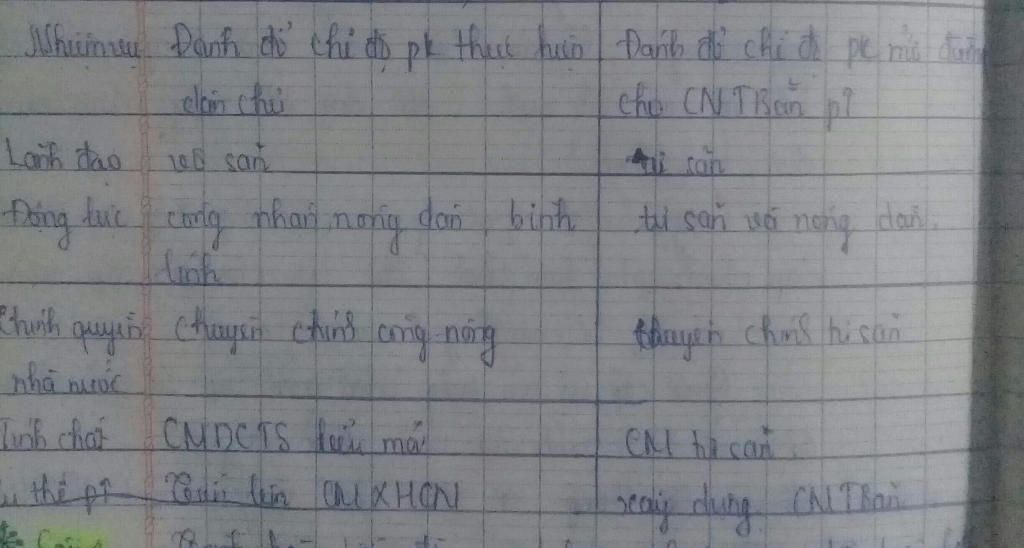 Nhiệm vụ Đánh đổ chế độ pk thực hiện Đánh đổ chế độ pk mở đường
dân chủ cho CNTBản p↑
Lãnh đạo vô sản tư sản
Động lực công nhân, nông dân, binh tư sản và nông dân.
lính
Chính quyền chuyên chính công nông chuyên chính tư sản
nhà nước
Tính chất CMDCTS kiểu mới CM tư sản.
thế p↑ lên CMXHCN xây dựng CNTBản